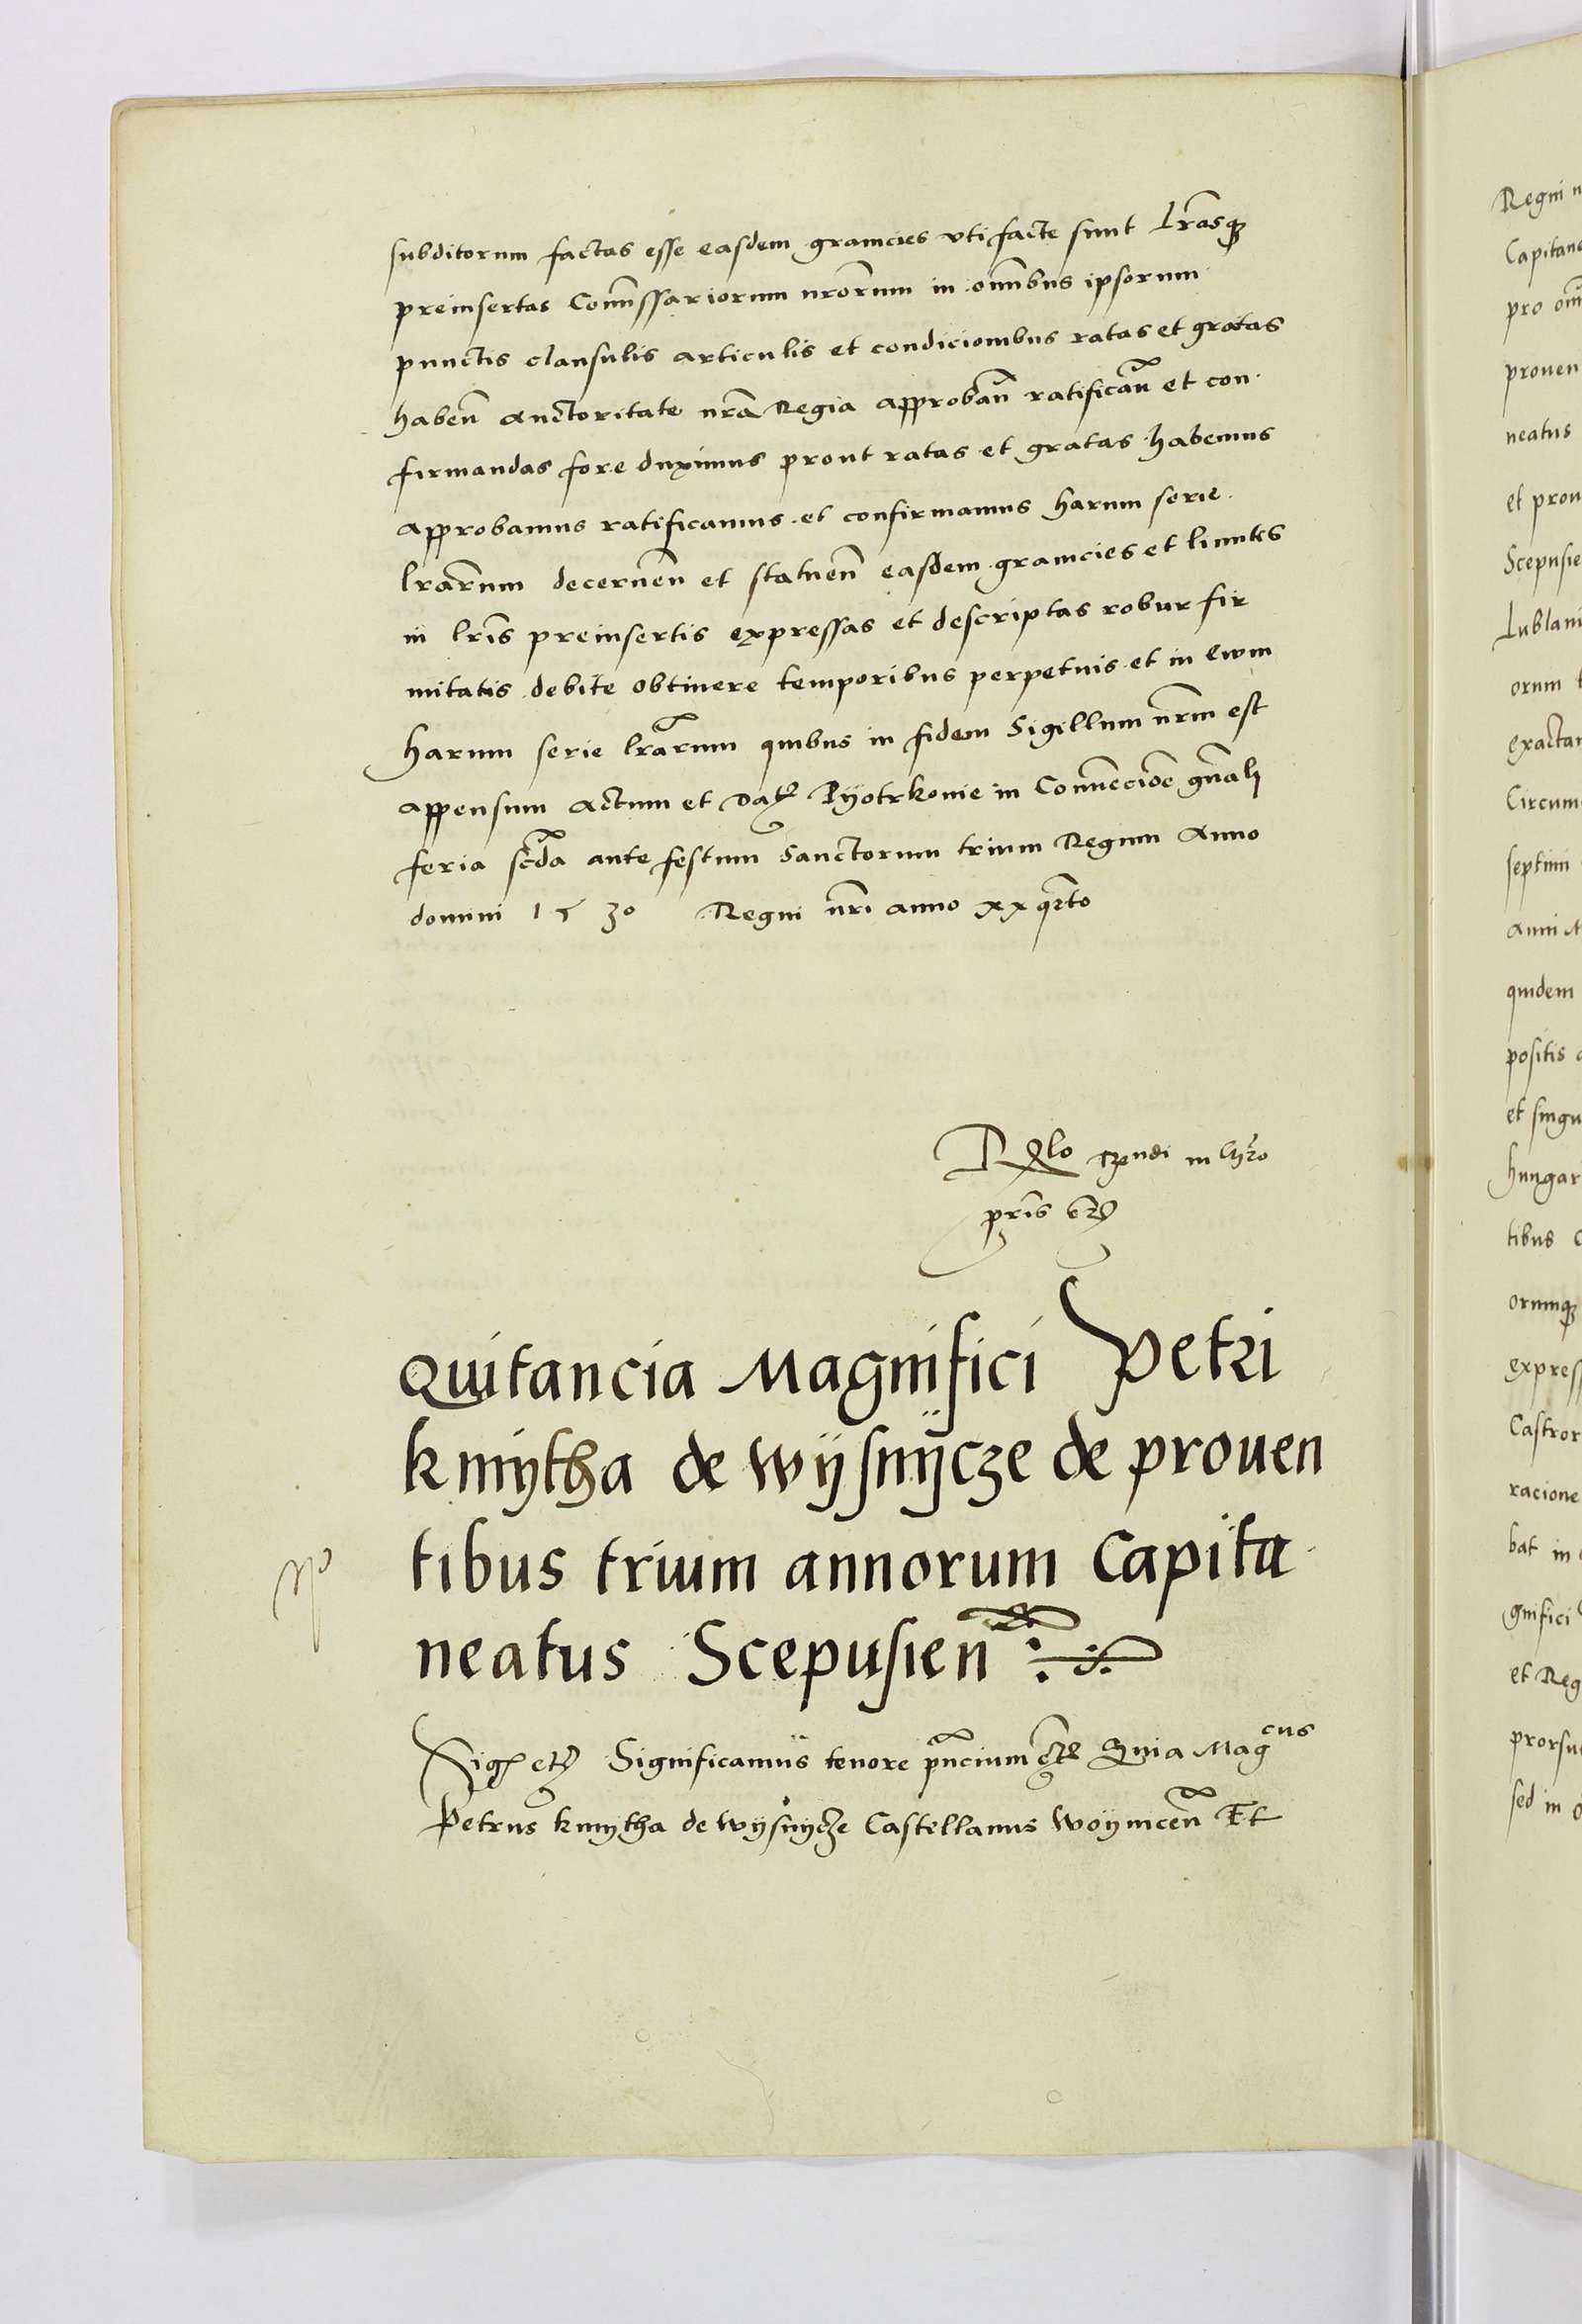 subditorum factas esse easdem granicies vti facte sunt lr̃asqꝫ
preinsertas Com̃issariorum nr̃orum in om̃ibus ipsorum
punctis clausulis articulis et condicionibus ratas et gratas
haben̄ auctoritate nr̃a Regia approban̄ ratifican̄ et con
firmandas fore duximus prout ratas et gratas habemus
approbamus ratificamus et confirmamus harum serie
lr̃arum decernen̄ et statuen̄ easdem granicies et limites
in lr̃is preinsertis expressas et descriptas robur fir
mitatis debite obtinere temporibus perpetuis et in ewm
harum serie lr̃arum quibus in fidem Sigillum nr̃m est
appensum Actum et Dat Pyotrkowie in Convencõe gñali
feria scd̃a ante festum Sanctorum trium Regum Anno
domini 1530 Regni nr̃i anno xx qr̃to
Rlo in
pr̃is
Quitancia Magnifici Petri
kmÿtha de wÿsnÿcze de prouen
tibus trium annorum Capita
neatus Scepusien̄
Sigs etc Significamus tenore pñcium etc Quia Magcus
Petrus kmytha de wysnycze Castellanus woynicen̄ Et
Regni n
Capitane
pro om̃
prouen
neatus
et prou
Scepusie
Lublani
orum
exactar
Circum
septimi
anni M
quidem
positis
et singu
hungar
tibus
orumqꝫ
express
Castror
racione
bat in
gnifici
et Reg
prorsu
sed in o